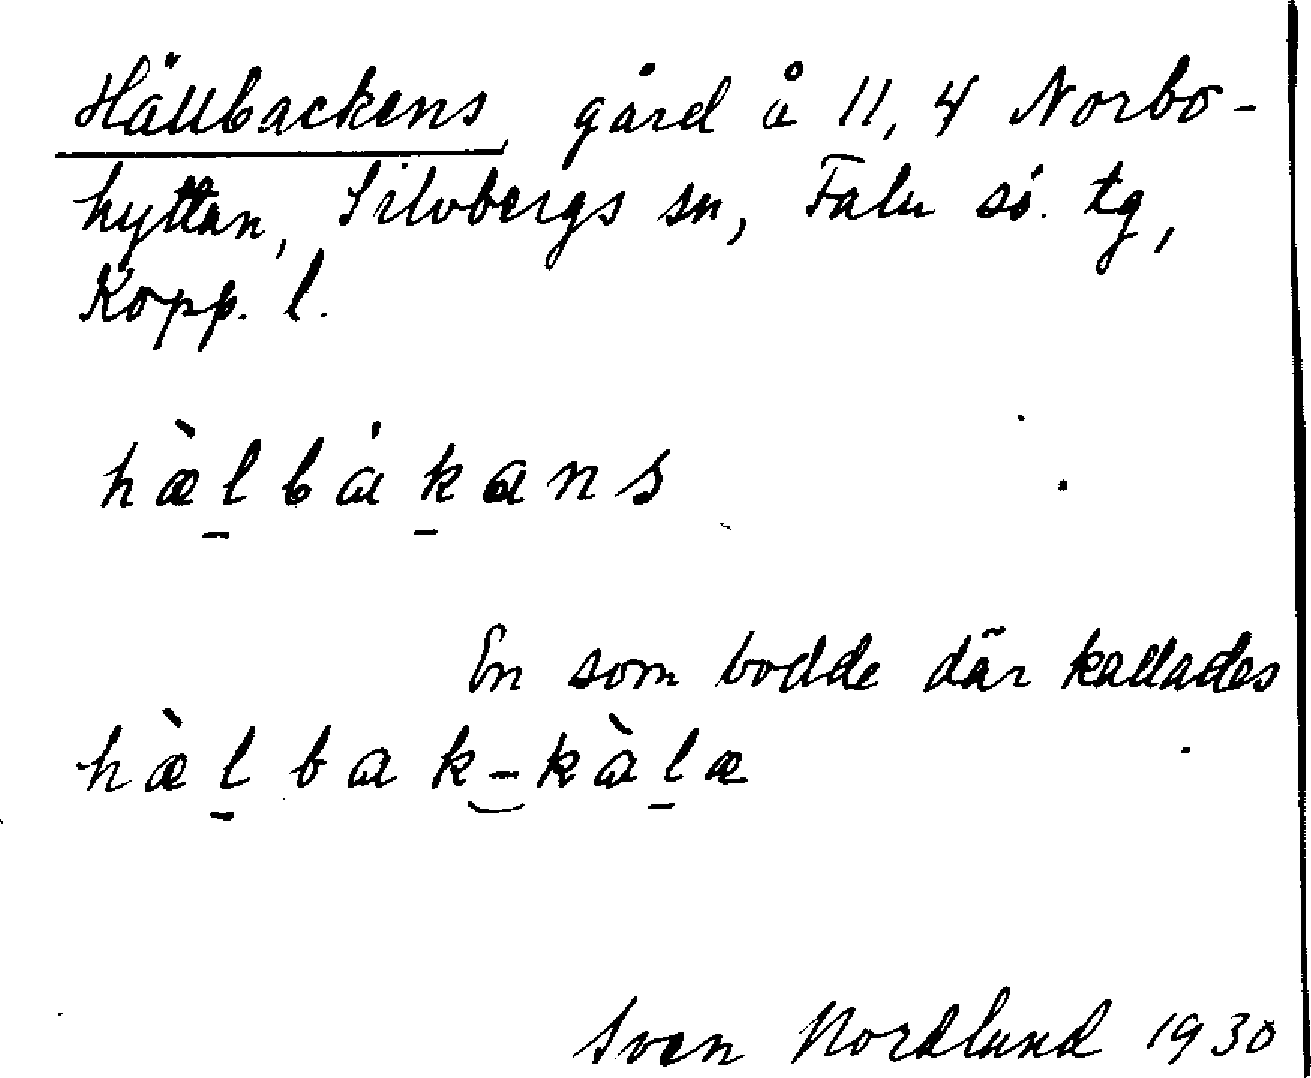 Hällbackens, gård å 11,4 Norbo-
hyttan, Silvbergs sn, Falu sö. tg,
Kopp. l.
hæ̀l̠bák̠ans
En som bodde där kallades
hæ̀l̠bak‿-kàl̠æ
Sven Nordlund 1930